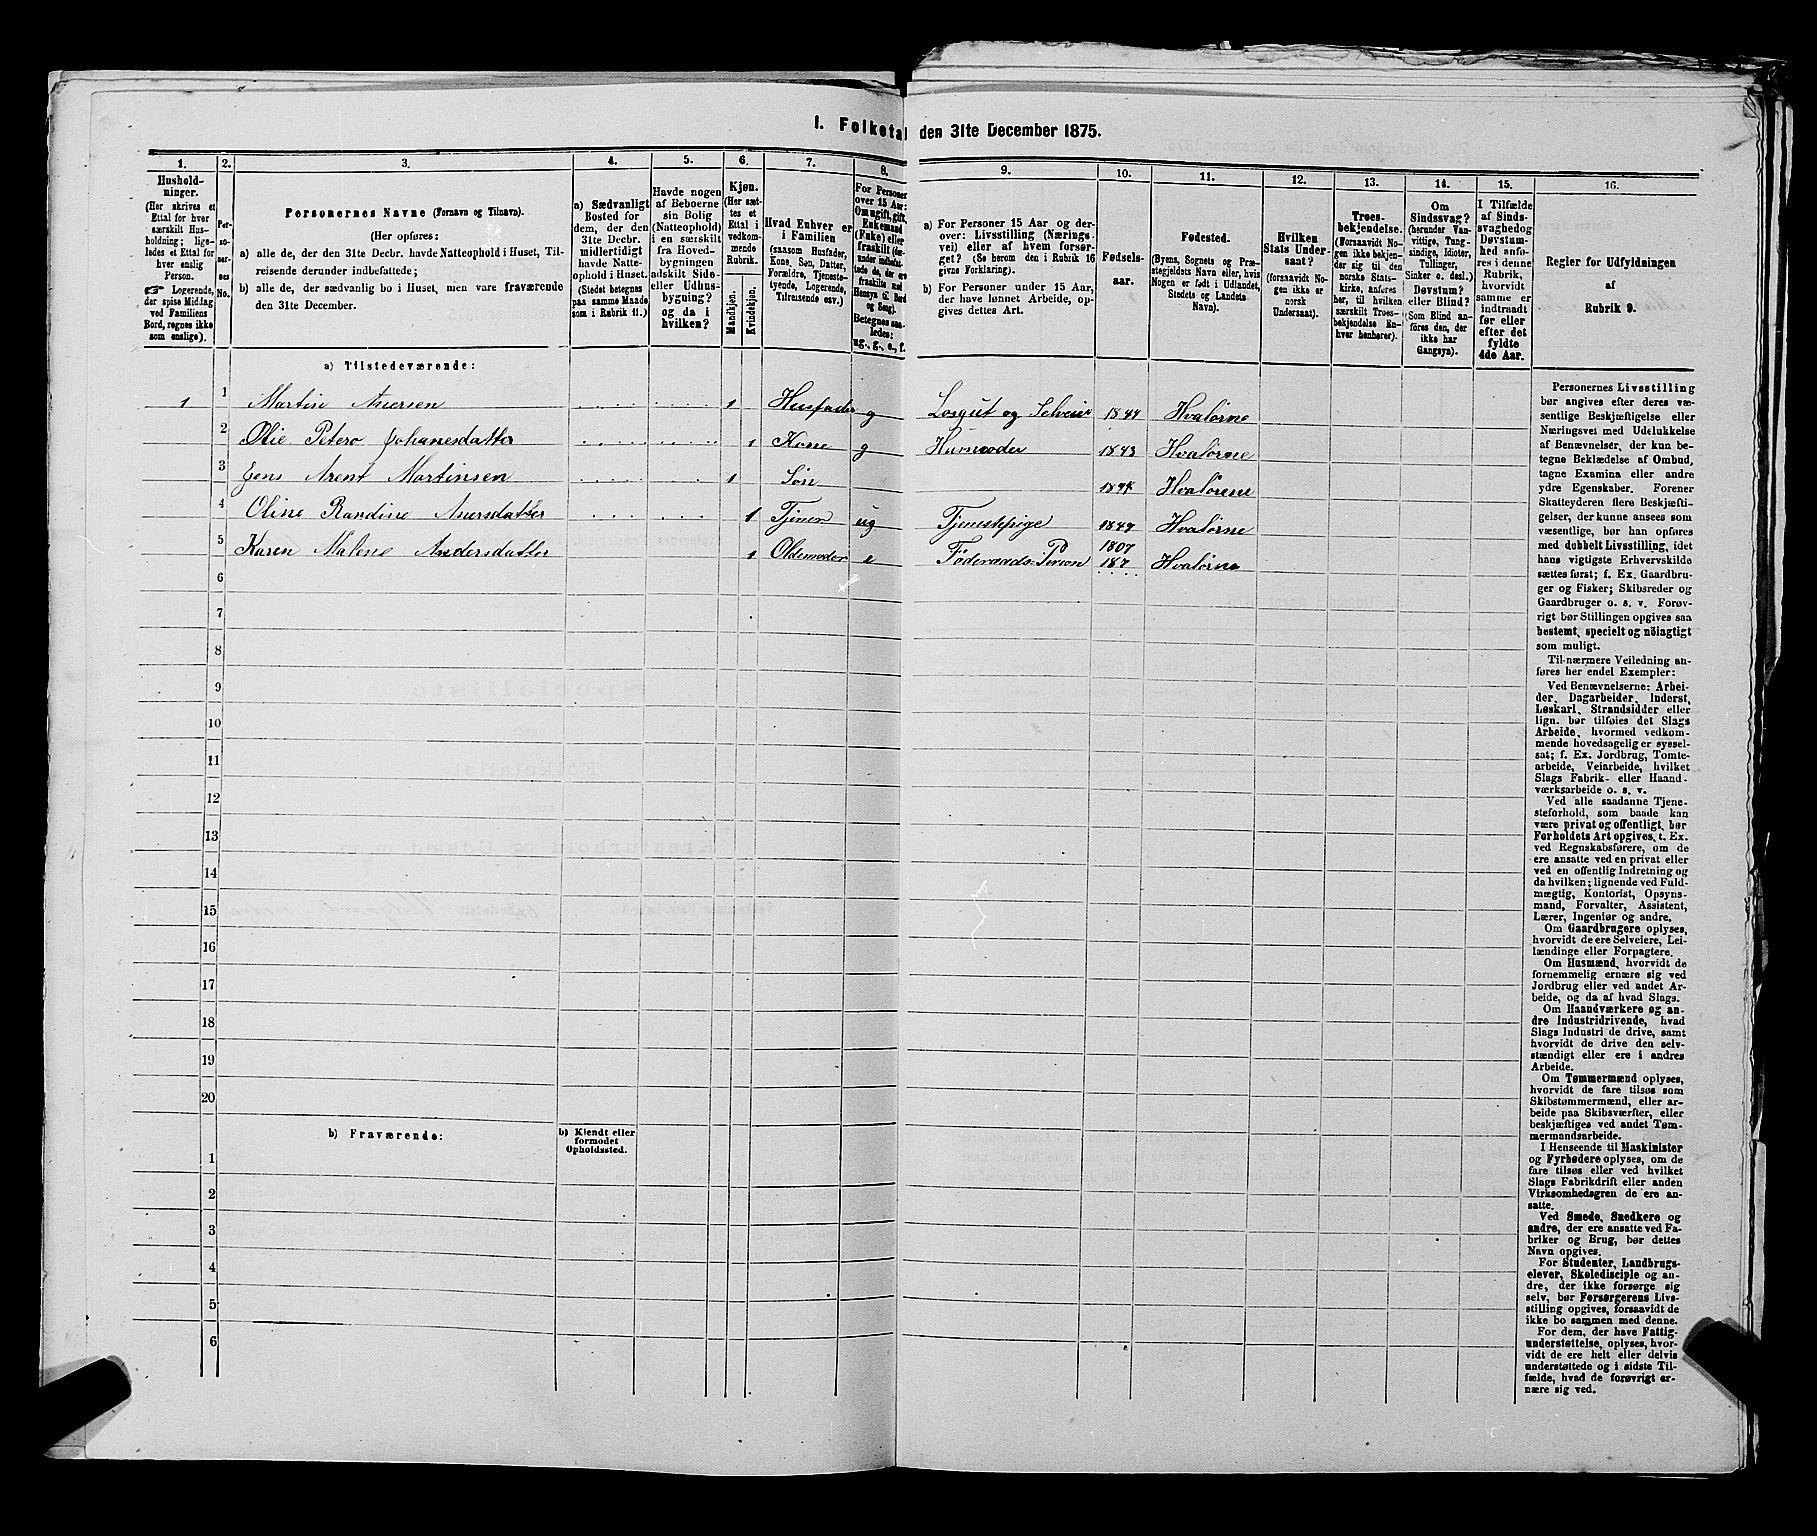 I. Folketal den 31te December 1875.
1.
2.
3.
4.
5.
6.
7.
8.
9.
10.
11.
12.
13.
14.
15.
16.
Hushold-
ninger.
(Her skrives et
Ettal for hver
særskilt Hus-
holdning; lige-
ledes et Ettal for
hver enslig
Person.
☞ Logerende,
der spise Middag
ved Familiens
Bord, regnes ikke
som enslige).
Per-
so-
ner-
nes
No.
Personernes Navne (Fornavn og Tilnavn).
(Her opføres:
a) alle de, der den 31te Decbr. havde Natteophold i Huset, Til-
reisende derunder indbefattede;
b) alle de, der sædvanlig bo i Huset, men vare fraværende
den 31te December.
a) Sædvanligt
Bosted for
dem, der den
31te Decbr.
midlertidigt
havde Natte-
ophold i Huset.
(Stedet betegnes
paa samme Maade
som i Rubrik 11.)
Havde nogen
af Beboerne
sin Bolig
(Natteophold)
i en særskilt
fra Hoved-
bygningen
adskilt Side-
eller Udhus-
bygning?
og da i
hvilken?
Kjøn.
(Her sæt-
tes et
Ettal i
vedkom-
mende
Rubrik.
Mandkjøn.
Kvindekjøn.
Hvad Enhver er
i Familien
(saasom Husfader,
Kone, Søn, Datter,
Forældre, Tjeneste-
tyende, Logerende,
Tilreisende osv.)
For Personer
over 15 Aar:
Om ugift, gift,
Enkemand
(Enke) eller
fraskilt
Betegnes saa-
ledes:
ug., g., e., f.
a) For Personer 15 Aar og der-
over: Livsstilling (Nærings-
vei) eller af hvem forsør-
get? (Se herom den i Rubrik 16
givne Forklaring).
b) For Personer under 15 Aar,
der have lønnet Arbeide, op-
gives dettes Art.
Fødsels-
aar.
Fødested.
(Byens, Sognets og Præ-
stegjeldets Navn eller, hvis
Nogen er født i Udlandet,
Stedets og Landets
Navn).
Hvilken
Stats Under-
saat?
(forsaavidt No-
gen ikke er
norsk
Undersaat).
Troes-
bekjendelse.
(Forsaavidt No-
gen ikke bekjen-
der sig til den
norske Stats-
kirke, anføres
her, til hvilken
særskilt Troes-
bekjendelse En-
hver henhører).
Om
Sindssvag?
(herunder Van-
vittige, Tung-
sindige, Idioter,
Tullinger,
Sinker o. desl.)
Døvstum?
eller Blind?
(Som Blind an-
føres den, der
ikke har
Gangsyn).
I Tilfælde
af Sinds-
svaghed og
Døvstum-
hed anfø-
res i denne
Rubrik,
hvorvidt
samme er
indtraadt
før eller
efter det
fyldte
4de Aar.
Regler for Udfyldningen
af
Rubrik 9.
a) Tilstedeværende:
1 1 Martin Anersen 1 Husfader g Losgut og Selveier 1844 Hvalørne
2 Olie Petero Johanesdatter 1 Kone g Husmoder 1843 Hvalørne
3 Jens Arent Martinsen 1 Søn Hvalørne
4 Oline Randine Anersdatter 1 Tjener ug Tjenestepige 1849 Hvalørne
5 Karen Malene Andersdatter 1 Oldemoder e Føderaads-Person 1807 187 Hvalørne
6
7
8
9
10
11
12
13
14
15
16
17
18
19
20
b) Fraværende:
b) Kjendt eller
formodet
Opholdssted.
1
2
3
4
5
6
Personernes Livsstilling
bør angives efter deres væ-
sentlige Beskjæftigelse eller
Næringsvei med Udelukkelse
af Benævnelser, der kun be-
tegne Beklædelse af Ombud,
tagne Examina eller andre
ydre Egenskaber. Forener
Skatteyderen flere Beskjæfti-
gelser, der kunne ansees som
væsentlige, bør han opføres
med dobbelt Livsstilling, idet
hans vigtigste Erhvervskilde
sættes først; f. Ex. Gaardbru-
ger og Fisker; Skibsreder og
Gaardbruger o. s. v. Forøv-
rigt bør Stillingen opgives saa
bestemt, specielt og nøiagtigt
som muligt.
Til nærmere Veiledning an-
føres her endel Exempler:
Ved Benævnelserne: Arbei-
der, Dagarbeider, Inderst,
Løskarl, Strandsidder eller
lign. bør tilføies det Slags
Arbeide, hvormed vedkom-
mende hovedsagelig er syssel-
sat; f. Ex. Jordbrug, Tomte-
arbeide, Veiarbeide, hvilket
Slags Fabrik- eller Haand-
værksarbeide o. s. v.
Ved alle saadanne Tjene-
steforhold, som baade kan
være privat og offentligt, bør
Forholdets Art opgives, t. Ex.
ved Regnskabsførere, om de
ere ansatte ved en privat eller
ved en offentlig Indretning og
da hvilken; lignende ved Fuld-
mægtig, Kontorist, Opsyns-
mand, Forvalter, Assistent,
Lærer, Ingeniør og andre.
Om Gaardbrugere oplyses,
hvorvidt de ere Selveiere, Lei-
lændinge eller Forpagtere.
Om Husmænd, hvorvidt de
fornemmelig ernære sig ved
Jordbrug eller ved andet Ar-
beide, og da af hvad Slags.
Om Haandværkere og an-
dre Industridrivende, hvad
Slags Industri de drive, samt
hvorvidt de drive den selv-
stændigt eller ere i andres
Arbeide.
Om Tømmermænd oplyses,
hvorvidt de fare tilsøs som
Skibstømmermænd, eller ar-
beide paa Skibsværfter, eller
beskjæftiges ved andet Tøm-
mermandsarbeide.
I Henseende til Maskinister
og Fyrbødere oplyses, om de
fare tilsøs eller ved hvilket
Slags Fabrikdrift eller anden
Virksomhedsgren de ere an-
satte.
Ved Smede, Snedkere og
andre, der ere ansatte ved Fa-
briker og Brug, bør dettes
Navn opgives.
For Studenter, Landbrugs-
elever, Skoledisciple og an-
dre, der ikke forsørge sig
selv, bør Forsørgerens Livs-
stilling opgives, forsaavidt de
ikke bo sammen med denne.
For dem, der have Fattig-
understøttelse, oplyses, hvor-
vidt de ere helt eller delvis
understøttede og i sidste Til-
fælde, hvad de forøvrigt er-
nære sig ved.